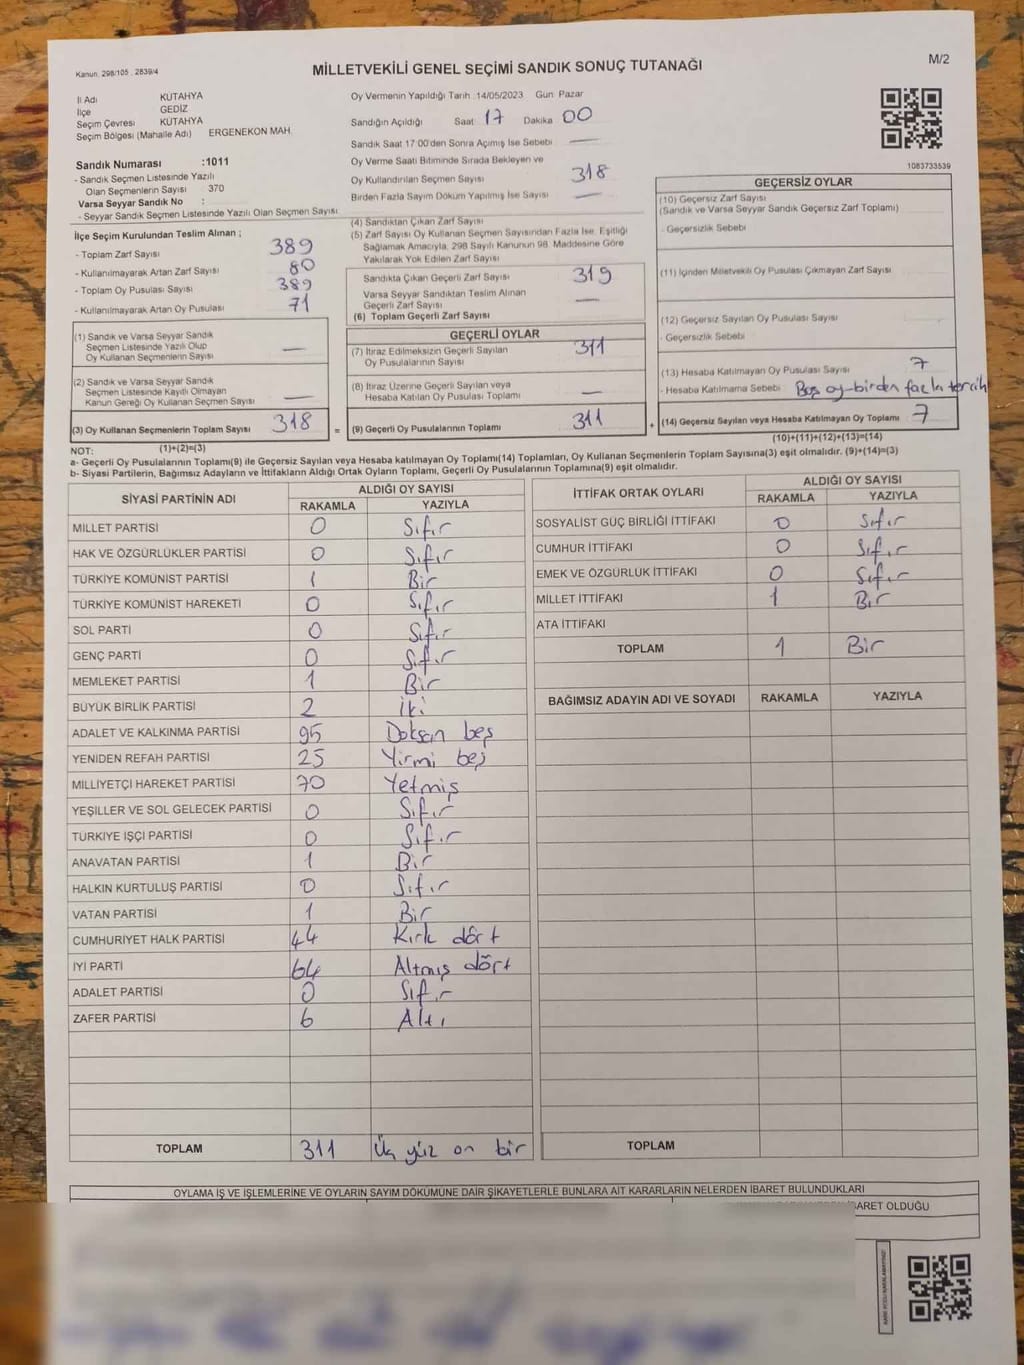 Kanun. 298/105 . 2839/4
MİLLETVEKİLİ GENEL SEÇİMİ SANDIK SONUÇ TUTANAĞI
M/2
İl Adı KÜTAHYA
İlçe GEDİZ
Seçim Çevresi KÜTAHYA
Seçim Bölgesi (Mahalle Adı) ERGENEKON MAH.
Sandık Numarası :1011
- Sandık Seçmen Listesinde Yazılı
Olan Seçmenlerin Sayısı 370
Varsa Seyyar Sandık No :
- Seyyar Sandık Seçmen Listesinde Yazılı Olan Seçmen Sayısı
Oy Vermenin Yapıldığı Tarih .14/05/2023 Gün Pazar
Sandığın Açıldığı Saat 17 Dakika 00
Sandık Saat 17 00'den Sonra Açımış İse Sebebi —
Oy Verme Saati Bitiminde Sırada Bekleyen ve
Oy Kullandırılan Seçmen Sayısı 318
Birden Fazla Sayım Döküm Yapılmış İse Sayısı —
1083733539
İlçe Seçim Kurulundan Teslim Alınan ;
- Toplam Zarf Sayısı 389
- Kullanılmayarak Artan Zarf Sayısı 80
- Toplam Oy Pusulası Sayısı 389
- Kullanılmayarak Artan Oy Pusulası 71
(1) Sandık ve Varsa Seyyar Sandık
Seçmen Listesinde Yazılı Olup
Oy Kullanan Seçmenlerin Sayısı —
(2) Sandık ve Varsa Seyyar Sandık
Seçmen Listesinde Kayıtlı Olmayan
Kanun Gereği Oy Kullanan Seçmen Sayısı —
(3) Oy Kullanan Seçmenlerin Toplam Sayısı 318 =
(1)+(2)=(3)
(4) Sandıktan Çıkan Zarf Sayısı
(5) Zarf Sayısı Oy Kullanan Seçmen Sayısından Fazla İse, Eşitliği
Sağlamak Amacıyla, 298 Sayılı Kanunun 98. Maddesine Göre
Yakılarak Yok Edilen Zarf Sayısı
Sandıkta Çıkan Geçerli Zarf Sayısı 319
Varsa Seyyar Sandıktan Teslim Alınan
Geçerli Zarf Sayısı —
(6) Toplam Geçerli Zarf Sayısı
GEÇERLİ OYLAR
(7) İtiraz Edilmeksizin Geçerli Sayılan
Oy Pusulalarının Sayısı 311
(8) İtiraz Üzerine Geçerli Sayılan veya
Hesaba Katılan Oy Pusulası Toplamı —
(9) Geçerli Oy Pusulalarının Toplamı 311 +
GEÇERSİZ OYLAR
(10) Geçersiz Zarf Sayısı
(Sandık ve Varsa Seyyar Sandık Geçersiz Zarf Toplamı)
- Geçersizlik Sebebi
(11) İçinden Milletvekili Oy Pusulası Çıkmayan Zarf Sayısı
(12) Geçersiz Sayılan Oy Pusulası Sayısı
- Geçersizlik Sebebi
(13) Hesaba Katılmayan Oy Pusulası Sayısı 7
- Hesaba Katılmama Sebebi Boş oy-birden fazla tercih
(14) Geçersiz Sayılan veya Hesaba Katılmayan Oy Toplamı 7
(10)+(11)+(12)+(13)=(14)
NOT:
a- Geçerli Oy Pusulalarının Toplamı(9) ile Geçersiz Sayılan veya Hesaba katılmayan Oy Toplamı(14) Toplamları, Oy Kullanan Seçmenlerin Toplam Sayısına(3) eşit olmalıdır. (9)+(14)=(3)
b- Siyasi Partilerin, Bağımsız Adayların ve İttifakların Aldığı Ortak Oyların Toplamı, Geçerli Oy Pusulalarının Toplamına(9) eşit olmalıdır.
SİYASİ PARTİNİN ADI ALDIĞI OY SAYISI
RAKAMLA YAZIYLA
MİLLET PARTİSİ 0 Sıfır
HAK VE ÖZGÜRLÜKLER PARTİSİ 0 Sıfır
TÜRKİYE KOMÜNİST PARTİSİ 1 Bir
TÜRKİYE KOMÜNİST HAREKETİ 0 Sıfır
SOL PARTİ 0 Sıfır
GENÇ PARTİ 0 Sıfır
MEMLEKET PARTİSİ 1 Bir
BÜYÜK BİRLİK PARTİSİ 2 İki
ADALET VE KALKINMA PARTİSİ 95 Doksan beş
YENİDEN REFAH PARTİSİ 25 Yirmi beş
MİLLİYETÇİ HAREKET PARTİSİ 70 Yetmiş
YEŞİLLER VE SOL GELECEK PARTİSİ 0 Sıfır
TÜRKİYE İŞÇİ PARTİSİ 0 Sıfır
ANAVATAN PARTİSİ 1 Bir
HALKIN KURTULUŞ PARTİSİ 0 Sıfır
VATAN PARTİSİ 1 Bir
CUMHURİYET HALK PARTİSİ 44 Kırk dört
İYİ PARTİ 64 Altmış dört
ADALET PARTİSİ 0 Sıfır
ZAFER PARTİSİ 6 Altı
TOPLAM 311 Üç yüz on bir
İTTİFAK ORTAK OYLARI ALDIĞI OY SAYISI
RAKAMLA YAZIYLA
SOSYALİST GÜÇ BİRLİĞİ İTTİFAKI 0 Sıfır
CUMHUR İTTİFAKI 0 Sıfır
EMEK VE ÖZGÜRLÜK İTTİFAKI 0 Sıfır
MİLLET İTTİFAKI 1 Bir
ATA İTTİFAKI
TOPLAM 1 Bir
BAĞIMSIZ ADAYIN ADI VE SOYADI RAKAMLA YAZIYLA
TOPLAM
OYLAMA İŞ VE İŞLEMLERİNE VE OYLARIN SAYIM DÖKÜMÜNE DAİR ŞİKAYETLERLE BUNLARA AİT KARARLARIN NELERDEN İBARET BULUNDUKLARI
BARET OLDUĞU